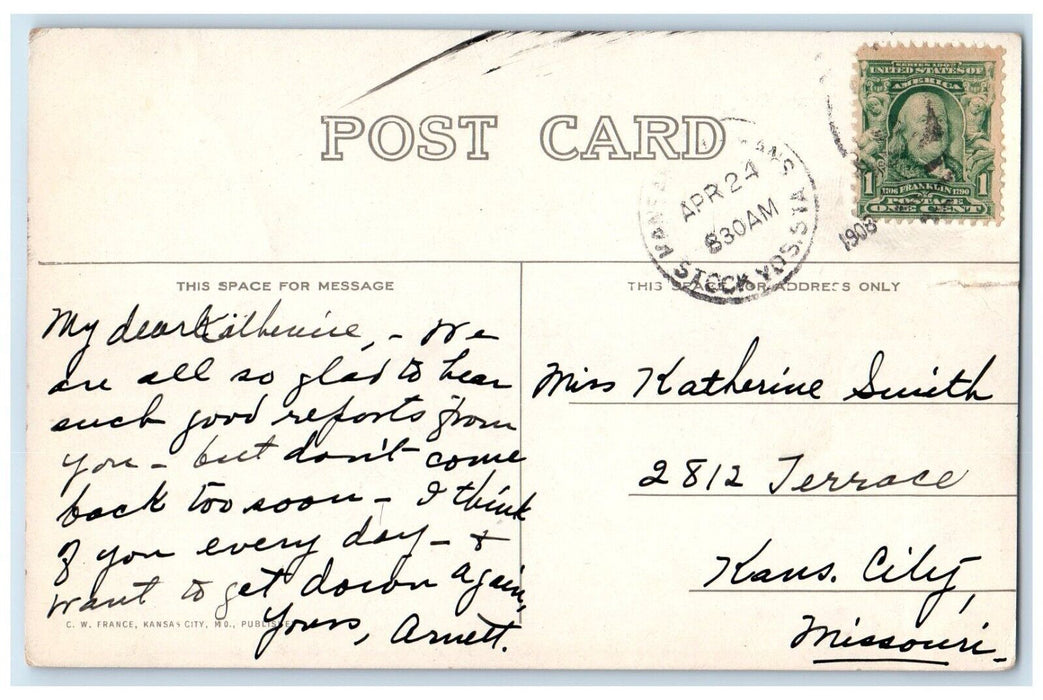 POST CARD
SERIES 1902
UNITED STATES OF
AMERICA
1 1706 FRANKLIN 1790 1
POSTAGE
ONE CENT
KANS
APR 24
830AM
STOCK YDS. STA
1908
THIS SPACE FOR MESSAGE
My dear Katherine, - We
are all so glad to hear
such good reports from
you - but don't come
back too soon - I think
of you every day - &
want to get down again,
Yours, Arnett.
C. W. FRANCE, KANSAS CITY, MO., PUBLISHER
THIS SPACE FOR ADDRESS ONLY
Miss Katherine Smith
2812 Terrace
Kans. City,
Missouri.